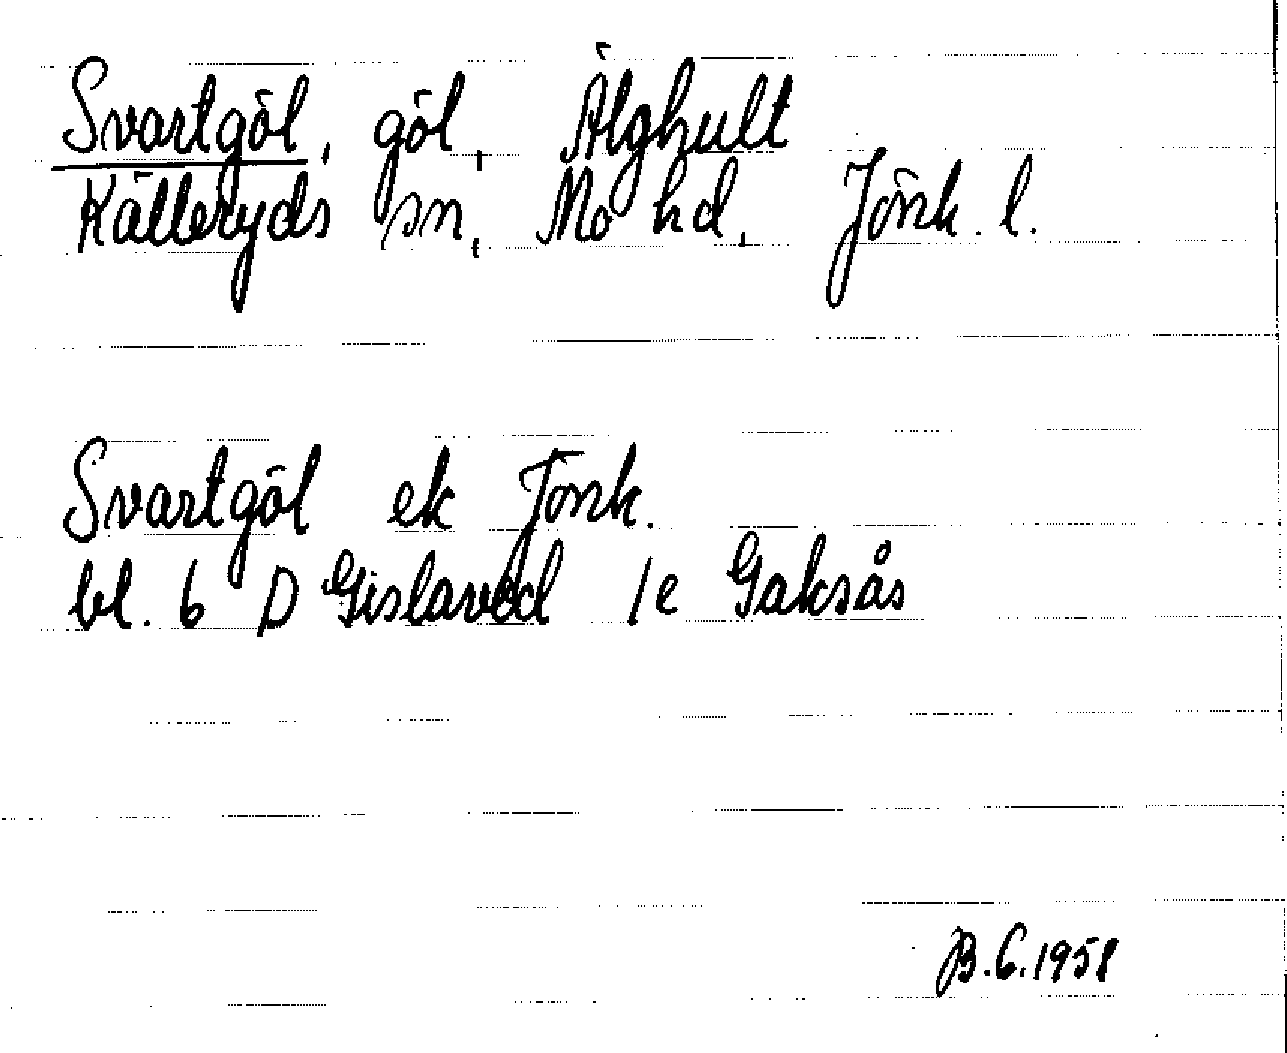 Svartgöl, göl, Älghult
Källeryds sn, Mo hd, Jönk. l.
Svartgöl ek Jönk.
bl. 6 D Gislaved 1e Gaksås
B.G.1958